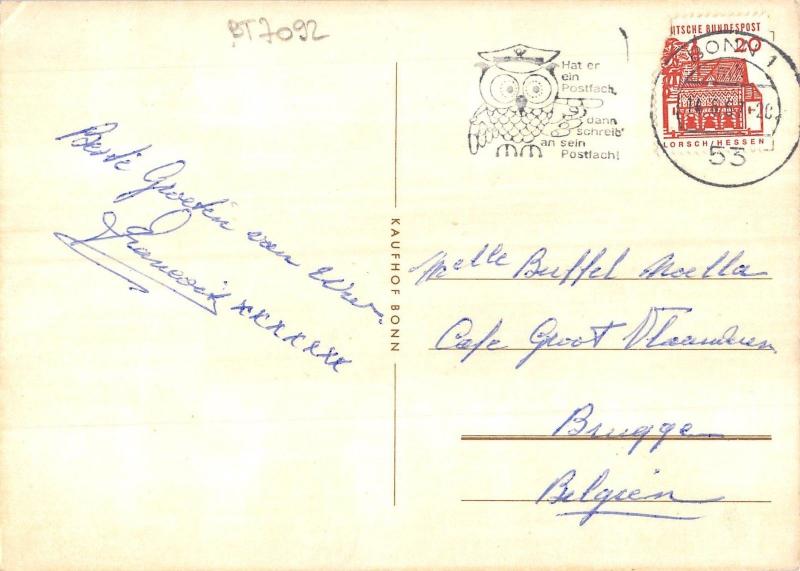 BT7092
Hat er
ein
Postfach,
dann
schreib'
an sein
Postfach!
TSCHE BUNDESPOST
20
LORSCH/HESSEN
BONN 1
53
Beste Groeten van Uw
xxxxxxx
KAUFHOF BONN
Melle Buffel Noella
Cafe Groot Vlaanderen
Brugge
Belgien